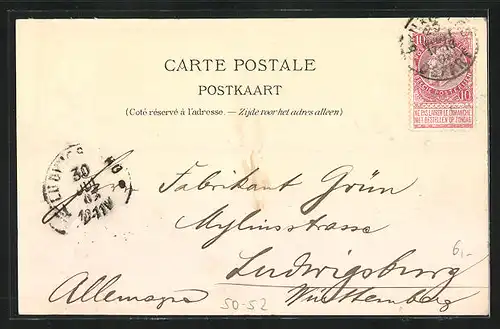 CARTE POSTALE
POSTKAART
(Coté réservé à l'adresse. — Zijde voor het adres alleen)
10 10
NE PAS LIVRER LE DIMANCHE
NIET BESTELLEN OP ZONDAG
30
JUL
03
Fabrikant Grün
Myliusstrasse
Ludwigsburg
Württemberg
Allemagne
50-52
6,-